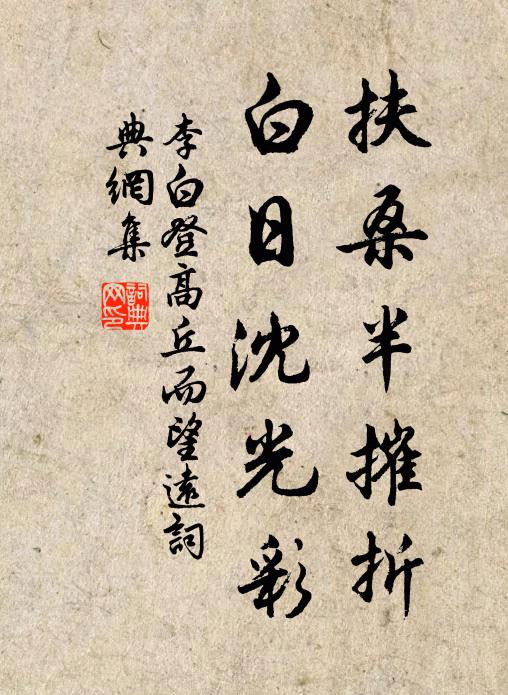 扶桑半摧折
白日沈光彩
李白登高丘而望遠詞
典網集
詞典
网印